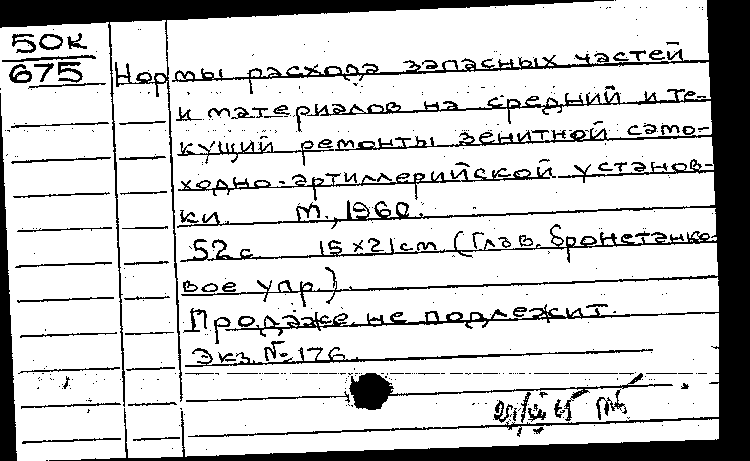 50к
675
Нормы расхода запасных частей
и материалов на средний и те-
кущий ремонты зенитной само-
ходно-артиллерийской установ-
ки. М., 1960.
52 с. 15×21 см (Глав. бронетанко-
вое упр.).
Продаже не подлежит.
Экз. № 176.